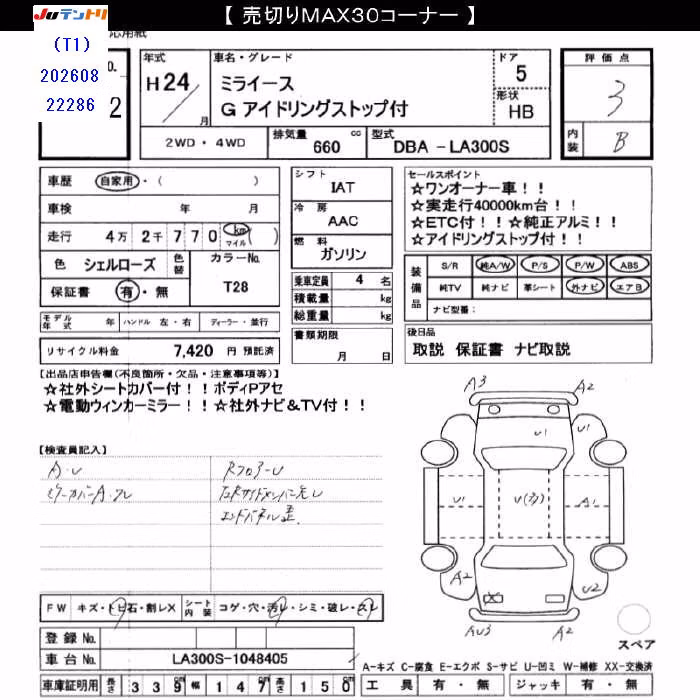 【 売切りMAX30コーナー 】
JUテントリ
応用紙
(T1)
202608
22286
o.
2
年式
H24
月
車名・グレード
ミライース
G アイドリングストップ付
ドア
5
形状
HB
評価点
3
内装
B
2WD ・ 4WD
排気量
660 cc
型式
DBA - LA300S
車歴 自家用 ・ ( )
車検 年 月
走行 4万 2千 7 7 0 km マイル ( )
色 シェルローズ 色替 カラーNo.
保証書 有 ・ 無 T28
シフト
IAT
冷房
AAC
燃料
ガソリン
乗車定員 4 名
積載量 kg
総重量 kg
セールスポイント
☆ワンオーナー車！！
☆実走行40000km台！！
☆ETC付！！☆純正アルミ！！
☆アイドリングストップ付！！
装備品
S/R 純A/W P/S P/W ABS
純TV 純ナビ 革シート 外ナビ エアB
ナビ型番：
モデル年式 年 ハンドル 左・右 ディーラー・並行
書類期限
月 日
後日品
取説 保証書 ナビ取説
リサイクル料金 7,420 円 預託済
【出品店申告欄(不良箇所・欠品・注意事項等)】
☆社外シートカバー付！！ボディPアセ
☆電動ウィンカーミラー！！☆社外ナビ&TV付！！
【検査員記入】
A・U
RフロアーU
エンドパネル歪
A3
A2
U1
U1
U1
U(3)
A1
A2
U2
X
AU3
A2
スペア
FW キズ・トビ石・割レX シート内装 コゲ・穴・汚レ・シミ・破レ・スレ
登録No.
車台No. LA300S-1048405
A-キズ C-腐食 E-エクボ S-サビ U-凹ミ W-補修 XX-交換済
車庫証明用 長さ 3 3 9 幅 1 4 7 高さ 1 5 0
工具 有・無 ジャッキ 有・無